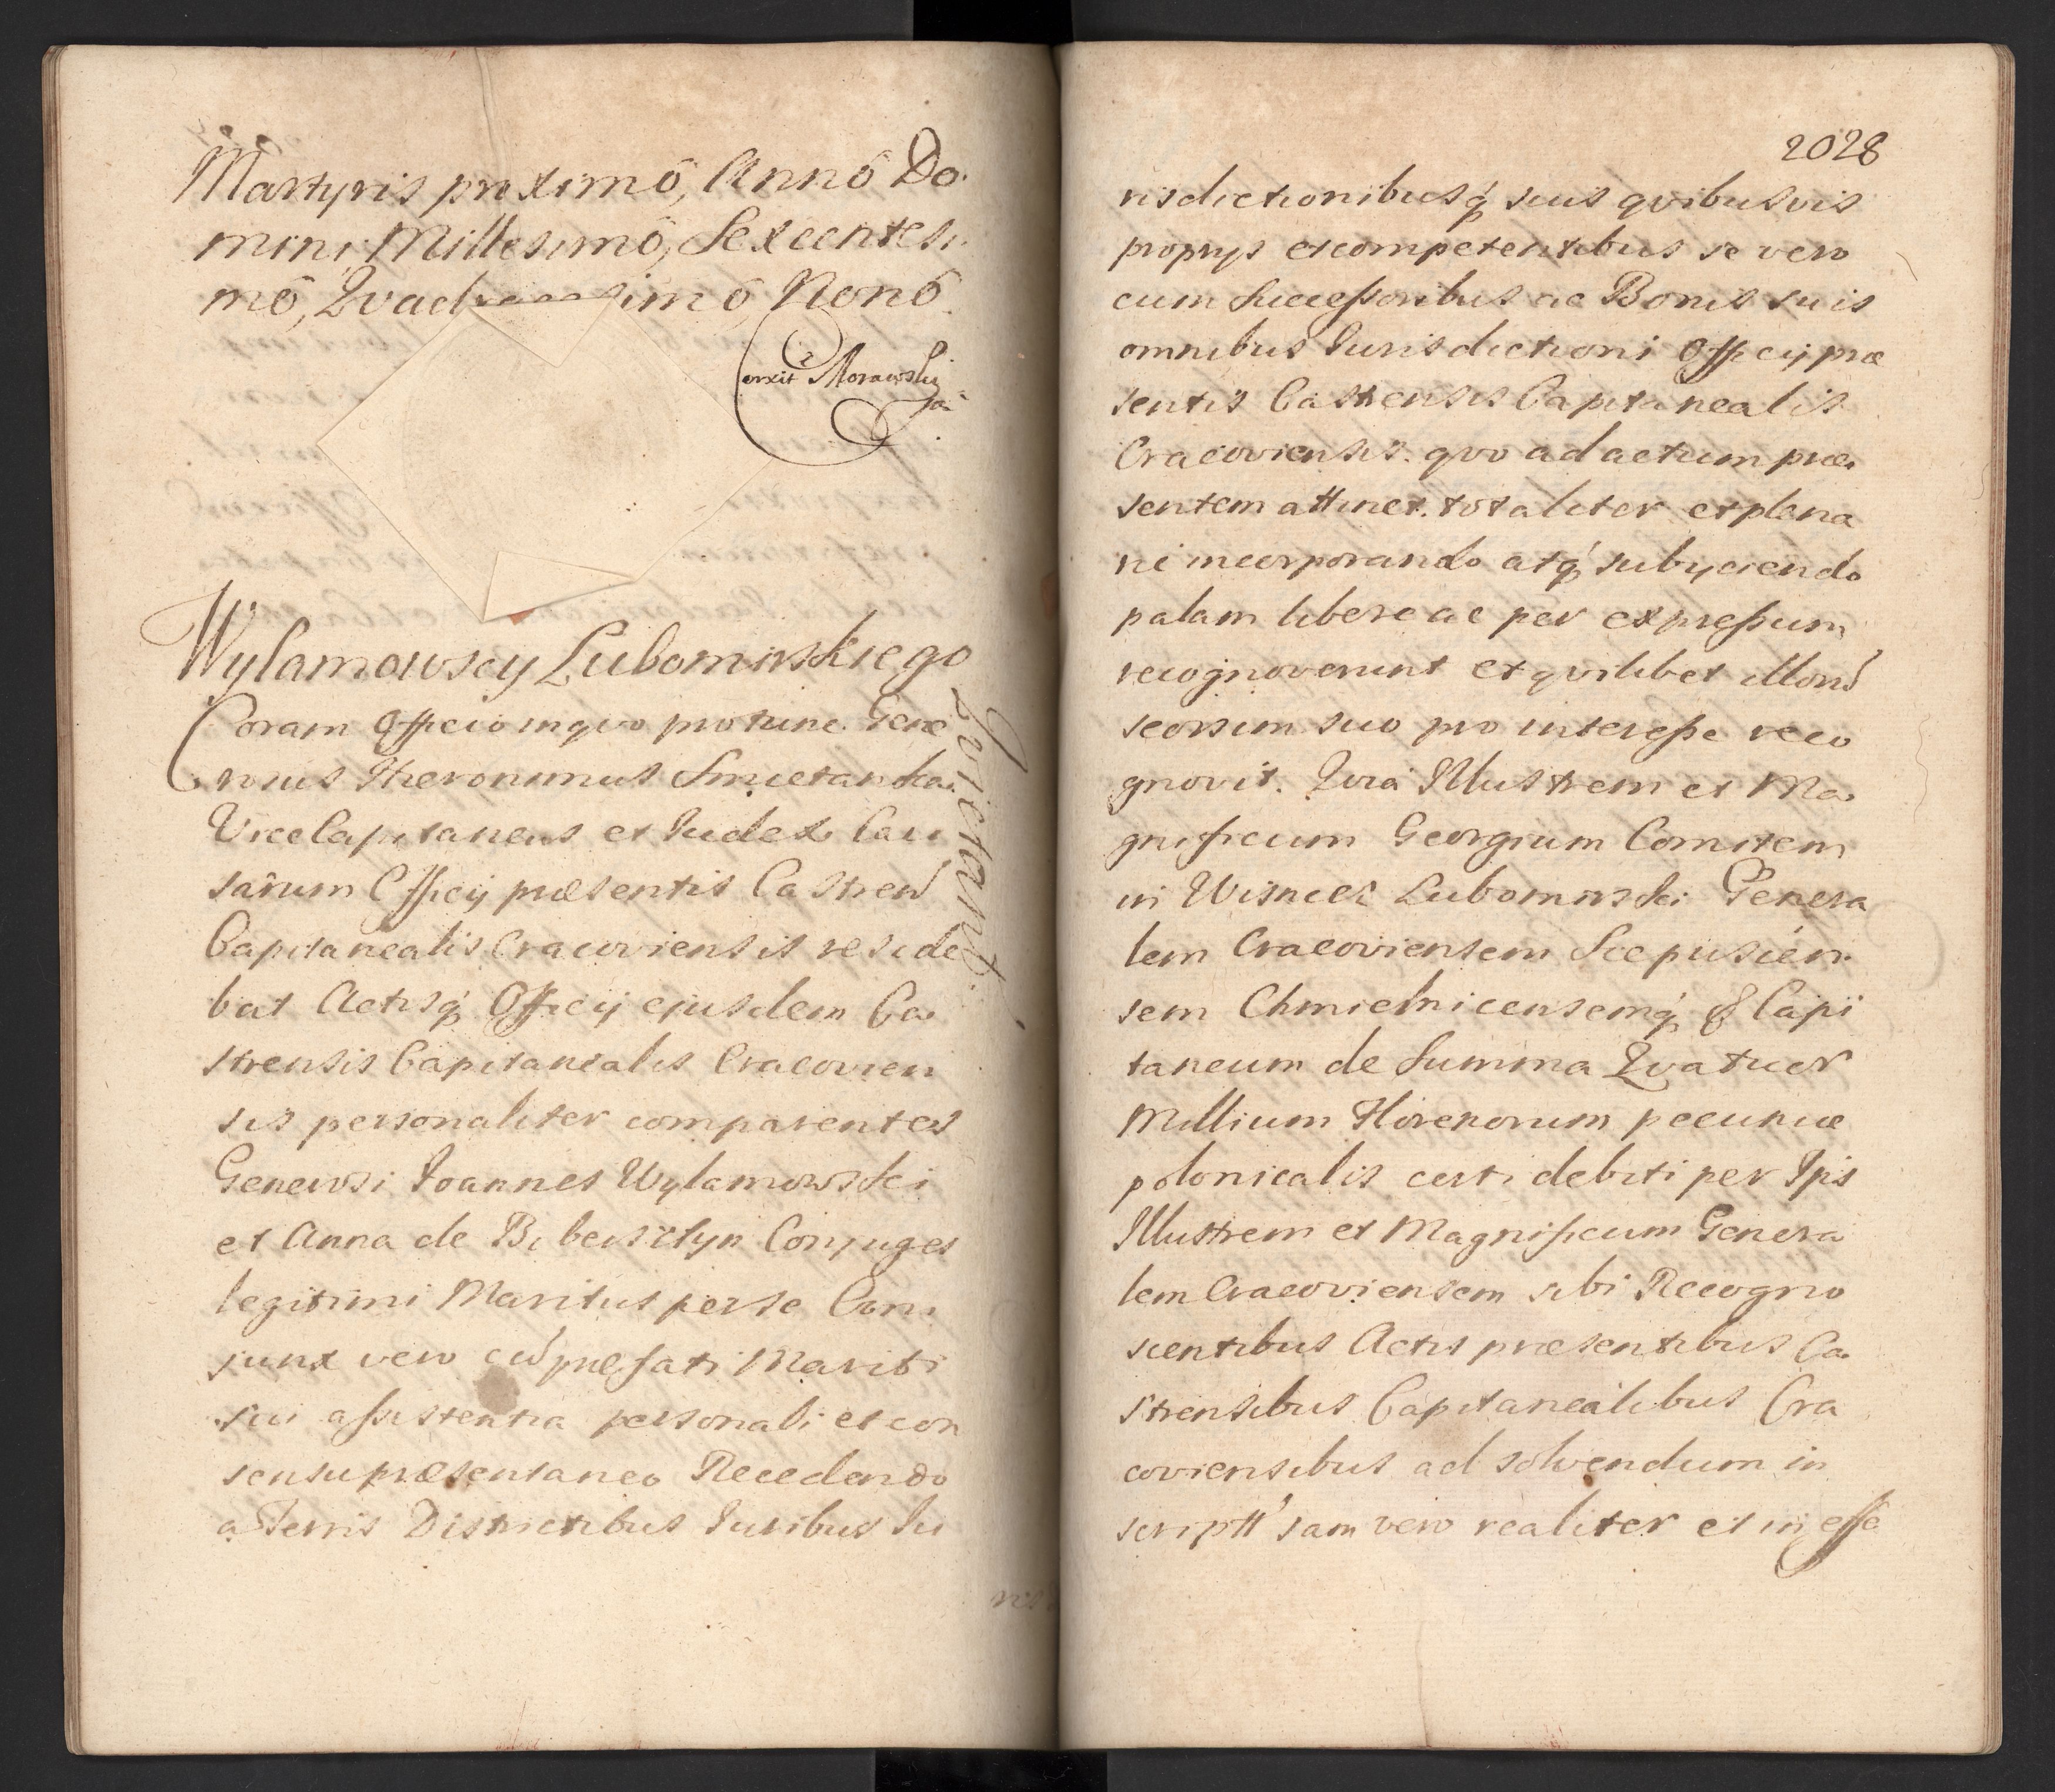 Martyris proximô, Annô Do
mini Millesimô, Sexcentesi
mô, Qvadragesimô, Nonô.
Correxit Morawsky
Wylamowscy Lubomirskiego
Qvietant.
Coram Officio in qvo pro tunc Gene
rosus Hieronimus Smietanka
ViceCapitaneus et Iudex Cau
sarum Officij præsentis Castren
Capitanealis Cracoviensis reside
bat Actisq́ Officij ejusdem Ca
strensis Capitanealis Cracovien
sis personaliter comparentes
Generosi Ioannes Wylamowski
et Anna de Bibersztyn Conjuges
legitimi Maritus per se Con
junx vero cū præfati Mariti
sui assistentia personali et con
sensu præsentaneo Recedendo
a Terris Districtibus Iuribus Iu
ris
2028
risdictionibusq́ suis qvibusvis
proprijs et competentibus se vero
cum Successoribus ac Bonis suis
omnibus Iurisdictioni Officij præ
sentis Castrensis Capitanealis
Cracoviensis. qvo ad actum præ
sentem attinet. totaliter et plena
rie incorporando atq́ subijciendo
palam libere ac per expressum
recognoverunt et qvilibet illorū
seorsim suo pro interesse reco
gnovit. Qvia Illustrem et Ma
gnificum Georgium Comitem
in Wisnicz Lubomirski Genera
lem Cracoviensem Scepusien
sem Chmielnicensemq́ & Capi
taneum de Summa Qvatuor
Millium Florenorum pecuniæ
polonicalis certi debiti per Ips
Illustrem et Magnificum Genera
lem Cracoviensem sibi Recogno
scentibus Actis præsentibus Ca
strensibus Capitanealibus Cra
coviensibus ad solvendum in
scriptt' jam vero realiter et in esse